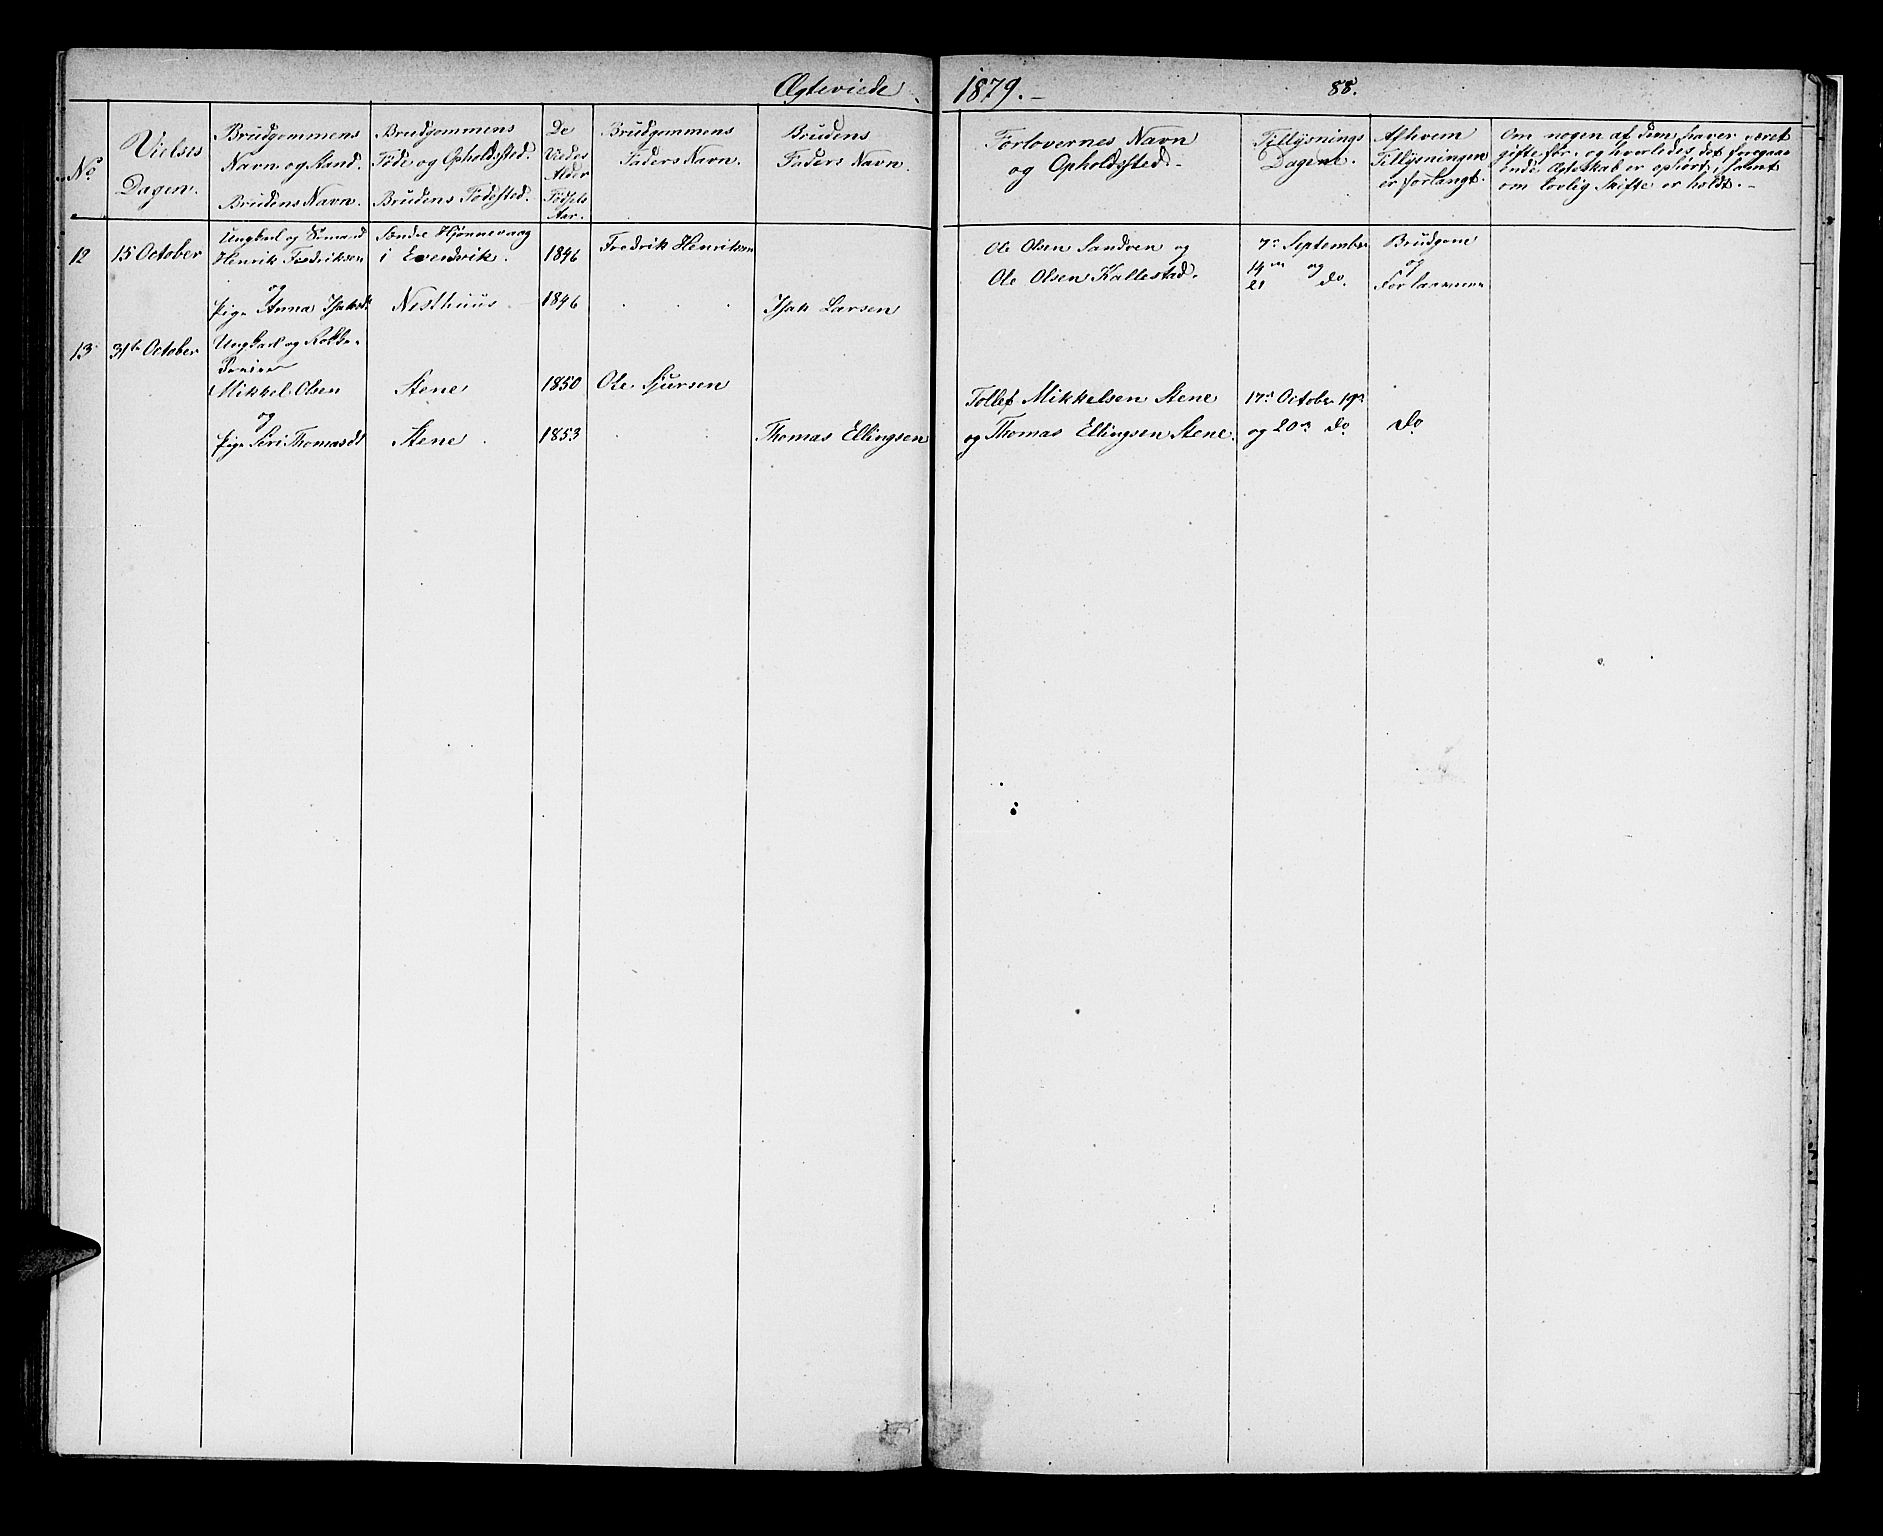 Ægteviede
1879.
88.
No
Vielses
Dagen.
Brudgommens
Navn og Stand.
Brudens Navn.
Brudgommens
Føde og Opholdssted.
Brudens Fødested.
De
Viedes
Alder
Fødsels
Aar.
Brudgommens
Faders Navn.
Brudens
Faders Navn.
Forlovernes Navn
og Opholdssted.
Tillysnings
Dagene.
Af hvem
Tillysningen
er forlangt.
Om nogen af dem haver været
gifte før, og hvorledes det foregaa-
ende Ægteskab er ophört, samt
om lovlig Skifte er holdt.
12
15 October
Ungkarl og Sömand
Henrik Fredriksen
og
pige Anna Isaksdt
Søndre Hjønnevaag
i
Nesthuus
1846
1846
Fredrik Henriksen
Isak Larsen
Ole Olsen Sandven og
Ole Olsen Kallestad.
7de September
14de og
21 do.
Brudgom
og
Forloverne
13
31te October
Ungkarl og Rokke-
Dreier
Mikkel Olsen
og
pige Siri Thomasdt
Stene
Stene
1850
1853
Ole Sjursen
Thomas Ellingsen
Tollef Mikkelsen Stene
og Thomas Ellingsen Stene.
17de October 19de
og 20de do
do